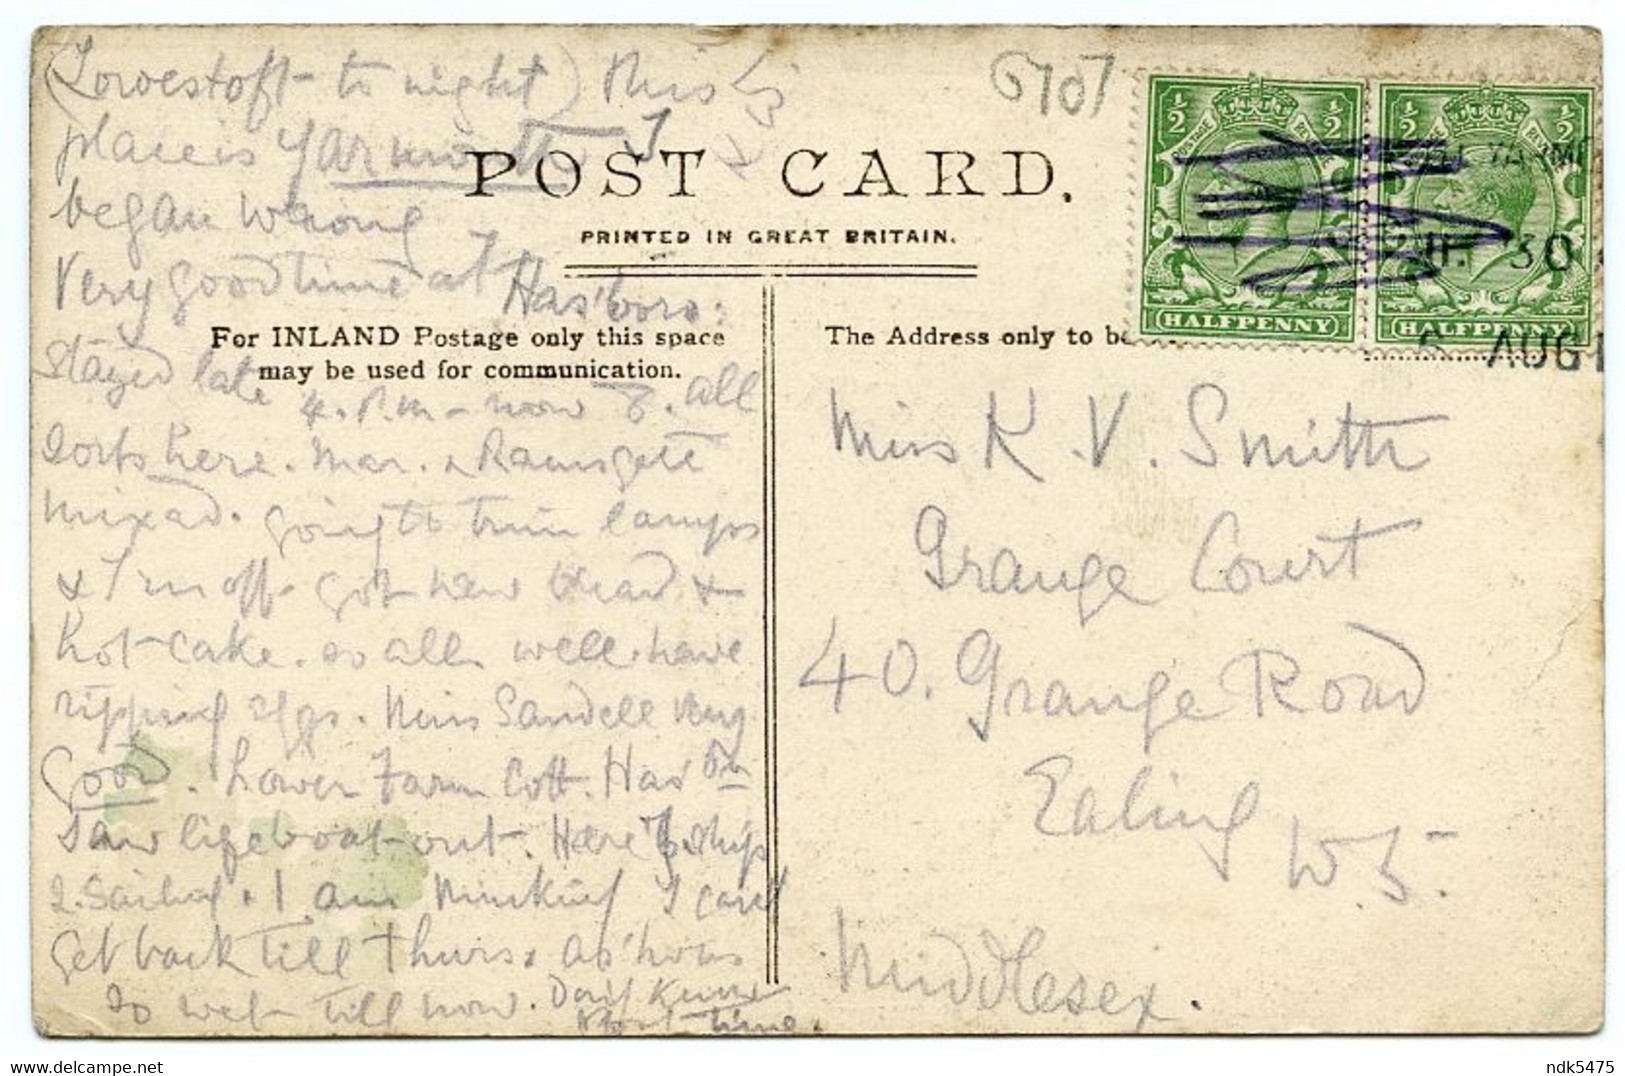 (Lowestoft to night) This
place is Yarmouth I
began wrong
Very good time at Has'boro:
stayed late 4. P.m - now 8. all
sorts here. Mar. & Ramsgate
mixed. going to trim lamps
& run off - got new bread &
hot-cake. so all well. have
ripping eggs. Miss Sandell very
good. Lower Farm Cott. Has'bro
Saw lifeboat out. Here ships
2. Sailing & I am thinking I can't
get back till Thurs. as
so wet till now.
time.
6707
POST CARD.
PRINTED IN GREAT BRITAIN.
For INLAND Postage only this space
may be used for communication.
The Address only to be
½ ½
POSTAGE REVENUE
HALFPENNY
½ ½
HALFPENNY
YARM
30
6 AUG 1
Miss K. V. Smith
Grange Court
40. Grange Road
Ealing
W5.
Middlesex.
ndk5475